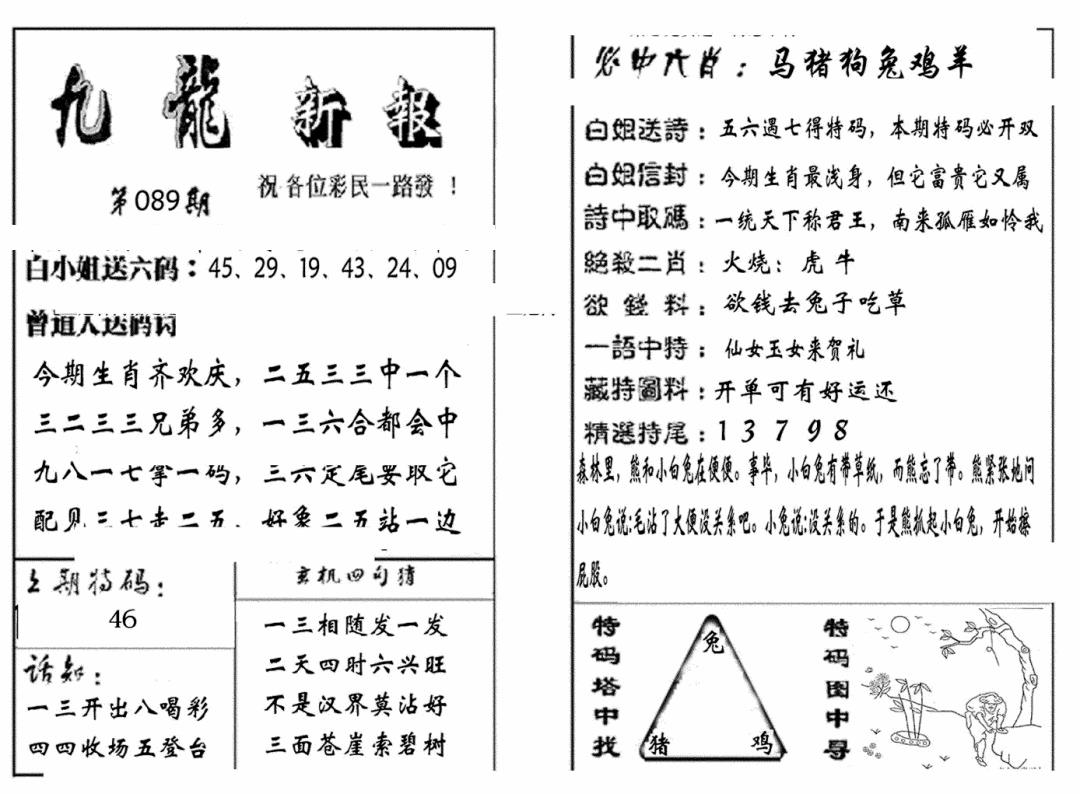 九龍新報
第089期
祝各位彩民一路發！
白小姐送六码：45、29、19、43、24、09
曾道人送码诗
今期生肖齐欢庆，二五三三中一个
三二三三兄弟多，一三六合都会中
九八一七掌一码，三六定尾要取它
配见三七走二五，好象二五站一边
上期特码：
46
话知：
一三开出八喝彩
四四收场五登台
玄机四句猜
一三相随发一发
二天四时六兴旺
不是汉界莫沾好
三面苍崖索碧树
必中六肖：马猪狗兔鸡羊
白姐送詩：五六遇七得特码，本期特码必开双
白姐信封：今期生肖最浅身，但它富贵它又属
詩中取碼：一统天下称君王，南来孤雁如怜我
絕殺二肖：火烧：虎牛
欲錢料：欲钱去兔子吃草
一語中特：仙女玉女来贺礼
藏特圖料：开单可有好运还
精選特尾：1 3 7 9 8
森林里，熊和小白兔在便便。事毕，小白兔有带草纸，而熊忘了带。熊紧张地问
小白兔说:毛沾了大便没关系吧。小兔说:没关系的。于是熊抓起小白兔，开始擦
屁股。
特码塔中找
兔
猪
鸡
特码图中寻